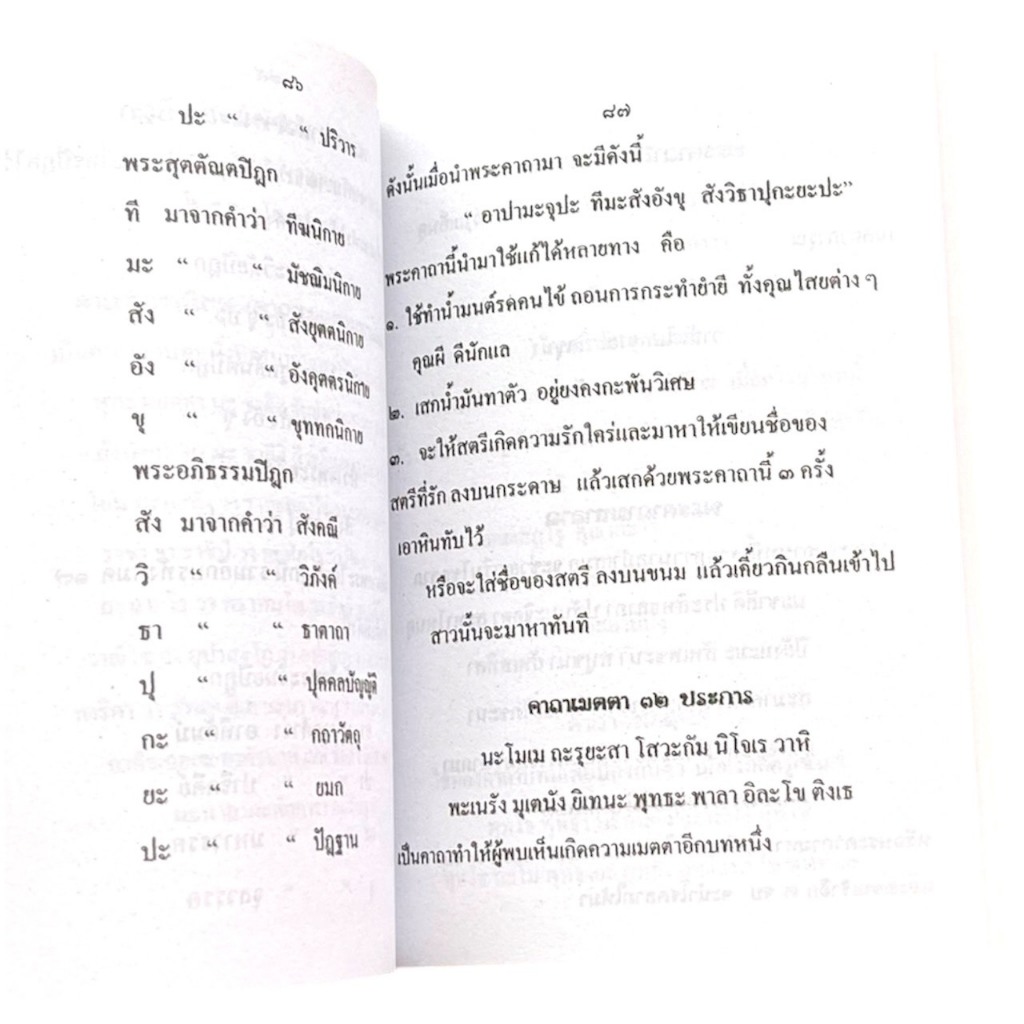 ๘๖
ปะ “ “ ปริวาร
พระสุตตัณตปิฎก
ที มาจากคำว่า ทีฆนิกาย
มะ “ “ มัชฌิมนิกาย
สัง “ “ สังยุตตนิกาย
อัง “ “ อังคุตตรนิกาย
ขุ “ “ ขุททกนิกาย
พระอภิธรรมปิฎก
สัง มาจากคำว่า สังคณี
วิ “ “ วิภังค์
ธา “ “ ธาตาถา
ปุ “ “ ปุคคลบัญญัติ
กะ “ “ กถาวัตถุ
ยะ “ “ ยมก
ปะ “ “ ปัฎฐาน
๘๗
ดังนั้นเมื่อนำพระคาถามา จะมีดังนี้
“ อาปามะจุปะ ทีมะสังอังขุ สังวิธาปุกะยะปะ”
พระคาถานี้นำมาใช้แก้ได้หลายทาง คือ
๑. ใช้ทำน้ำมนต์รดคนไข้ ถอนการกระทำยำยี ทั้งคุณไสยต่าง ๆ
คุณผี ดีนักแล
๒. เสกน้ำมันทาตัว อยู่ยงคงกะพันวิเศษ
๓. จะให้สตรีเกิดความรักใคร่และมาหาให้เขียนชื่อของ
สตรีที่รัก ลงบนกระดาษ แล้วเสกด้วยพระคาถานี้ ๓ ครั้ง
เอาหินทับไว้
หรือจะใส่ชื่อของสตรี ลงบนขนม แล้วเคี้ยวกินกลืนเข้าไป
สาวนั้นจะมาหาทันที
คาถาเมตตา ๑๒ ประการ
นะโมเม ถะรุยะสา โสวะกัม นิโจเร วาหิ
พะเนรัง มุเตนัง ยิเทนะ พุทธะ พาลา อิละโข ติงเธ
เป็นคาถาทำให้ผู้พบเห็นเกิดความเมตตาอีกบทหนึ่ง